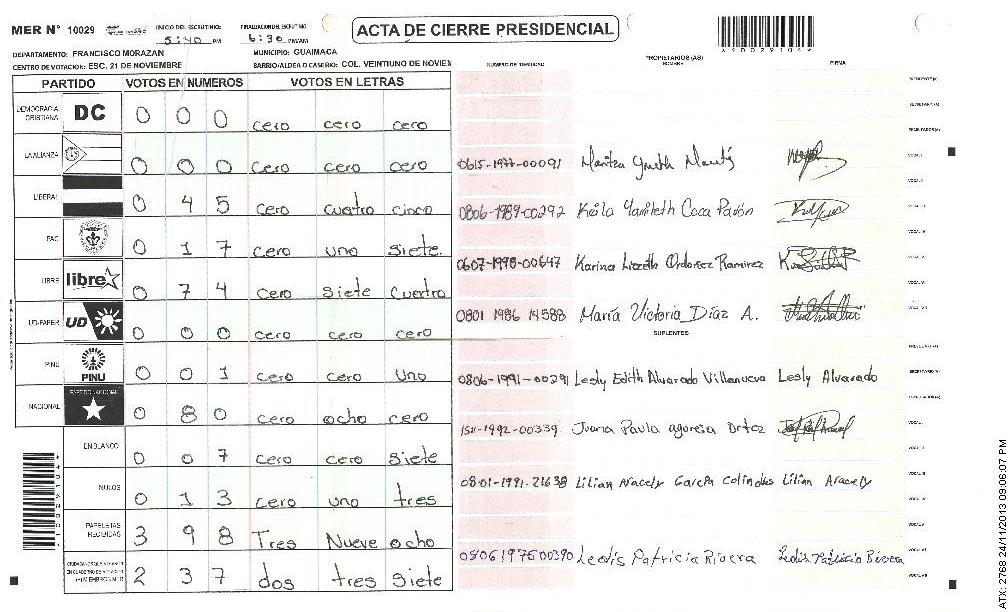 MER Nº 10029 INICIO DEL ESCRUTINIO: 5:40 PM FINALIZACION DEL ESCRUTINIO 6:30 PM/AM ACTA DE CIERRE PRESIDENCIAL
DEPARTAMENTO: FRANCISCO MORAZAN MUNICIPIO: GUAIMACA
CENTRO DE VOTACION: ESC. 21 DE NOVIEMBRE BARRIO/ALDEA O CASERIO: COL. VEINTIUNO DE NOVIEM
NUMERO DE IDENTIDAD PROPIETARIOS (AS) NOMBRE FIRMA
PARTIDO VOTOS EN NUMEROS VOTOS EN LETRAS
DEMOCRACIA CRISTIANA DC 0 0 0 cero cero cero
LA ALIANZA 0 0 0 cero cero cero
LIBERAL 0 4 5 cero cuatro cinco
PAC 0 1 7 cero uno siete
LIBRE libre 0 7 4 cero siete cuatro
UD-FAPER UD 0 0 0 cero cero cero
PINU PINU 0 0 1 cero cero uno
NACIONAL PARTIDO NACIONAL 0 8 0 cero ocho cero
EN BLANCO 0 0 7 cero cero siete
NULOS 0 1 3 cero uno tres
PAPELETAS RECIBIDAS 3 9 8 Tres Nueve ocho
2 3 7 dos tres siete
0615-1977-00091 Maritza
0806-1989-00292 Keila Yamileth Coca Pavón
0607-1998-00647 Karina Lizeth Ordoñez Ramirez
0801 1986 14588 María Victoria Díaz A.
SUPLENTES
0806-1991-00291 Lesly Edith Alvarado Villanueva Lesly Alvarado
1511-1992-00339 Juana Paula
0801-1991-21638 Lilian Aracely Garcia Colindres Lilian Aracely
0806197500390 Leodis Patricia Rivera Leodis Patricia Rivera
ATX: 2768 24/11/2013 09:06:07 PM